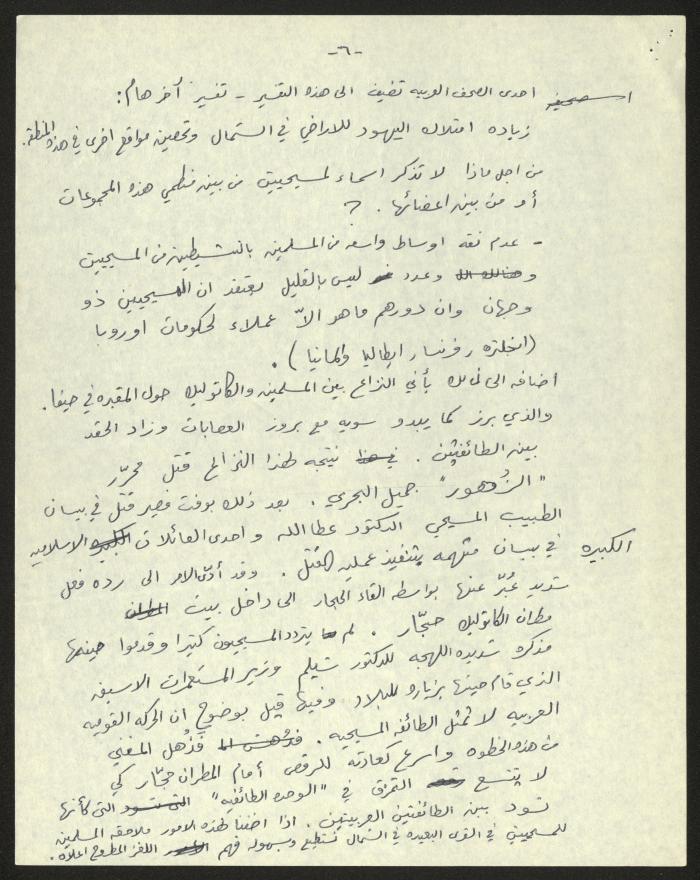 -٦-
احدى الصحف العربيه تضيف الى هذه التفسير - تفسير آخر هام:
زياده امتلاك اليهود للاراضي في الشمال وتحصين مواقع اخرى في هذه المنطقه.
من اجل ماذا لا تذكر اسماء لمسيحيين من بين منظمي هذه المجموعات
أو من بين اعضائها. ?
- عدم ثقه اوساط واسعه من المسلمين بالنشيطين من المسيحيين
وعدد ليس بالقليل يعتقد ان المسيحيين ذو
وجهان وان دورهم ما هو الاّ عملاء لحكومات اوروبا
(انجلتره، فرنسا، ايطاليا والمانيا).
اضافه الى ذلك يأتي النزاع بين المسلمين والكاثوليك حول المقبره في حيفا.
والذي برز كما يبدو سويه مع بروز العصابات وزاد الحقد
بين الطائفتين. نتيجه لهذا النزاع قتل محرّر
"الزُهور" جميل البحري. بعد ذلك بوقت قصير قتل في بيسان
الطبيب المسيحي الدكتور عطاالله واحدى العائلات الاسلاميه
الكبيره في بيسان متهمه بتنفيذ عمليه القتل. وقد أدّى الامر الى رده فعل
شديد عُبّر عنها بواسطه القاء الحجار الى داخل بيت
مطران الكاثوليك حجّار. لم يتردد المسيحيون كثيرا وقدموا حينها
مذكره شديده اللهجه للدكتور شيلم وزير المستعمرات الاسبق
الذي قام حينها بزياره للبلاد وفيها قيل بوضوح ان الحركه القوميه
العربيه لا تمثل الطائفه المسيحيه. فذُهل المفتي
من هذه الخطوه واسرع كعادته للرقص أمام المطران حجّار كي
لا يتسع التمزق في "الوحده الطائفيه" التي كأنها
تسود بين الطائفتين العربيتين. اذا اضفنا لهذه الامور ملاحقه المسلمين
للمسيحيين في القرى البعيده في الشمال نستطيع وبسهوله فهم اللغز المطروح اعلاه.